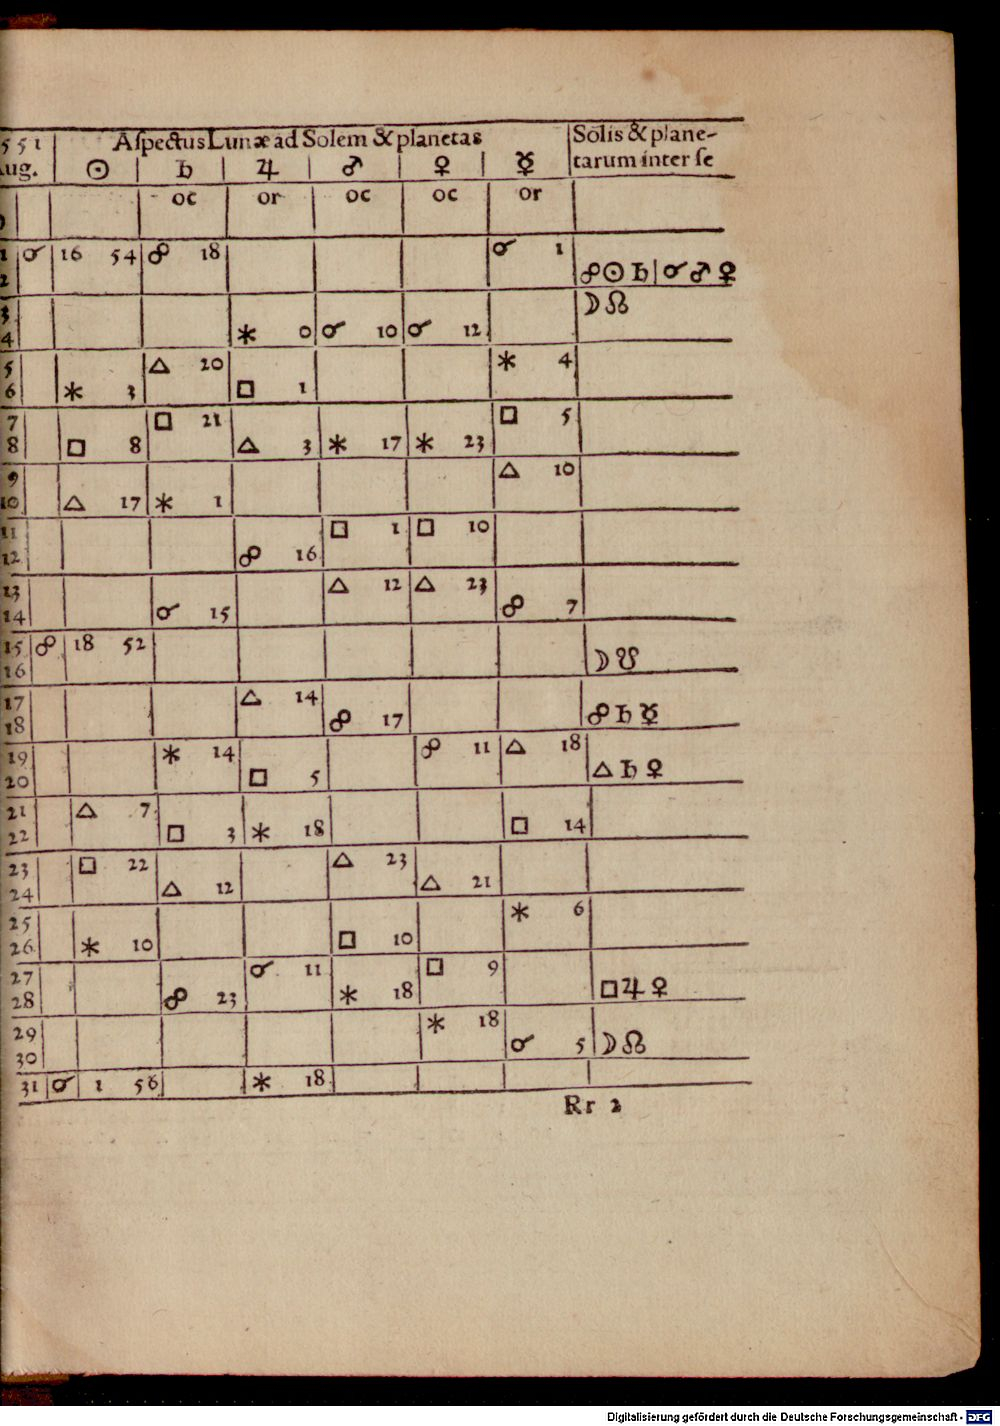 551 | Aſpectus Lunæ ad Solem & planetas | Solis & plane-
ug. | ☉ | ♄ | ♃ | ♂ | ♀ | ☿ | tarum inter ſe
oc or oc oc or
1 ☌ 16 54 ☍ 18 ☌ 1
2 ☍ ☉ ♄ | ☌ ♂ ♀
3 ☽ ☊
4 ⚹ 0 ☌ 10 ☌ 12
5 △ 20 ⚹ 4
6 ⚹ 3 □ 1
7 □ 21 □ 5
8 □ 8 △ 3 ⚹ 17 ⚹ 23
9 △ 10
10 △ 17 ⚹ 1
11 □ 1 □ 10
12 ☍ 16
13 △ 12 △ 23
14 ☌ 15 ☍ 7
15 ☍ 18 52
16 ☽ ☋
17 △ 14
18 ☍ 17 ☍ ♄ ☿
19 ⚹ 14 ☍ 11 △ 18
20 □ 5 △ ♄ ♀
21 △ 7
22 □ 3 ⚹ 18 □ 14
23 □ 22 △ 23
24 △ 12 △ 21
25 ⚹ 6
26 ⚹ 10 □ 10
27 ☌ 11 □ 9
28 ☍ 23 ⚹ 18 □ ♃ ♀
29 ⚹ 18
30 ☌ 5 ☽ ☊
31 ☌ 1 56 ⚹ 18
Rr 2
Digitalisierung gefördert durch die Deutsche Forschungsgemeinschaft - DFG